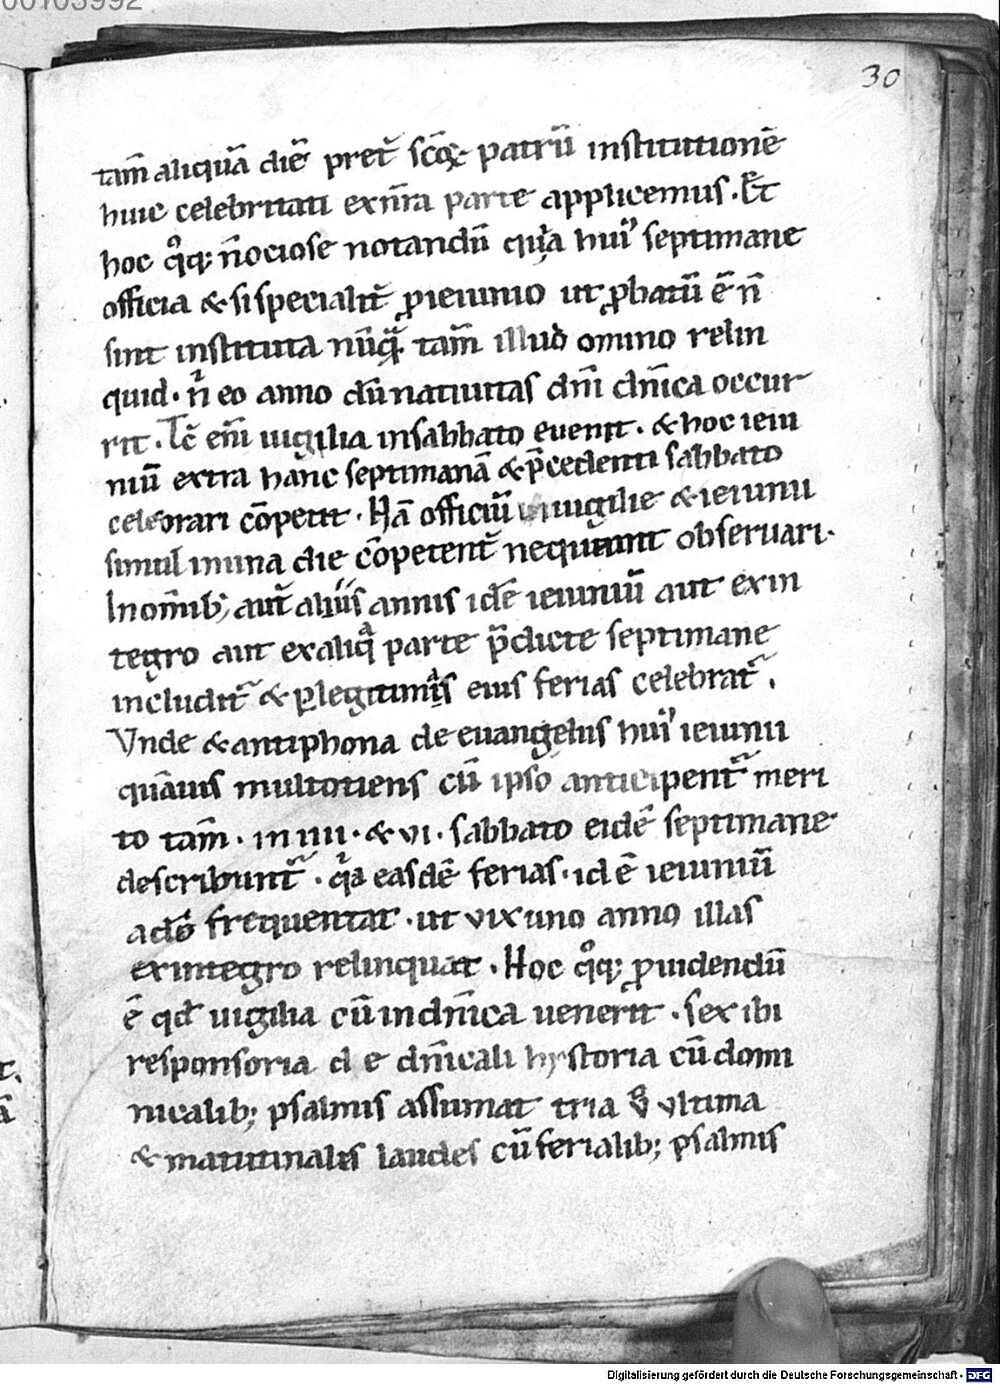 00103992
30
tam̄ aliquā diē pret̄ sc̄oꝝ patrū institutionē
huic celebritati ex nr̄a parte applicemus. Et
hoc qͦq; n̄ ociose notandū quia huiꝰ septimane
officia & si specialit̄ ꝓ ieiunio ut ꝓbatū ē n̄
sint instituta nūqᷓ tam̄ illud omino relin
quid. n̄ eo anno dū natiuitas dn̄i dn̄ica occur
rit. Tc̄ eni̅ uigilia in sabbato euenit. & hoc ieiu
niū extra hanc septimanā & p̄cedenti sabbato
celebrari cōpetit. Nā officiū uigilie & ieiunii
simul in una die cōpetent̄ nequeunt obseruari.
In om̄ib; aut̄ aliis annis idē ieiuniū aut ex in
tegro aut ex aliqᷓ parte p̄dicte septimane
includit᷑ & ꝑ legitimas eius ferias celebrat᷑.
Vnde & antiphona de euangeliis huiꝰ ieiunii
quāuis multotiens cū ipso anticipent᷑ meri
to tam̄. in iiii. & vi. sabbato eidē septimane
describunt᷑. qͥa easdē ferias. id ē ieiuniū
adeo frequentat. ut vix uno anno illas
ex integro relinquat. Hoc qͦq; ꝓuidendū
ē qd̄ uigilia cū in dn̄ica uenerit. sex ibi
responsoria de dn̄icali hystoria cū domi
nicalib; psalmis assumat tria v̄ ultima
& matutinales laudes cū ferialib; psalmis
Digitalisierung gefördert durch die Deutsche Forschungsgemeinschaft - DFG